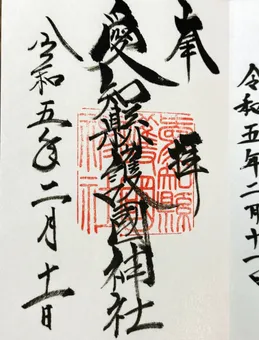 奉拝
愛知縣護國神社
令和五年二月十一日
令和五年二月十一